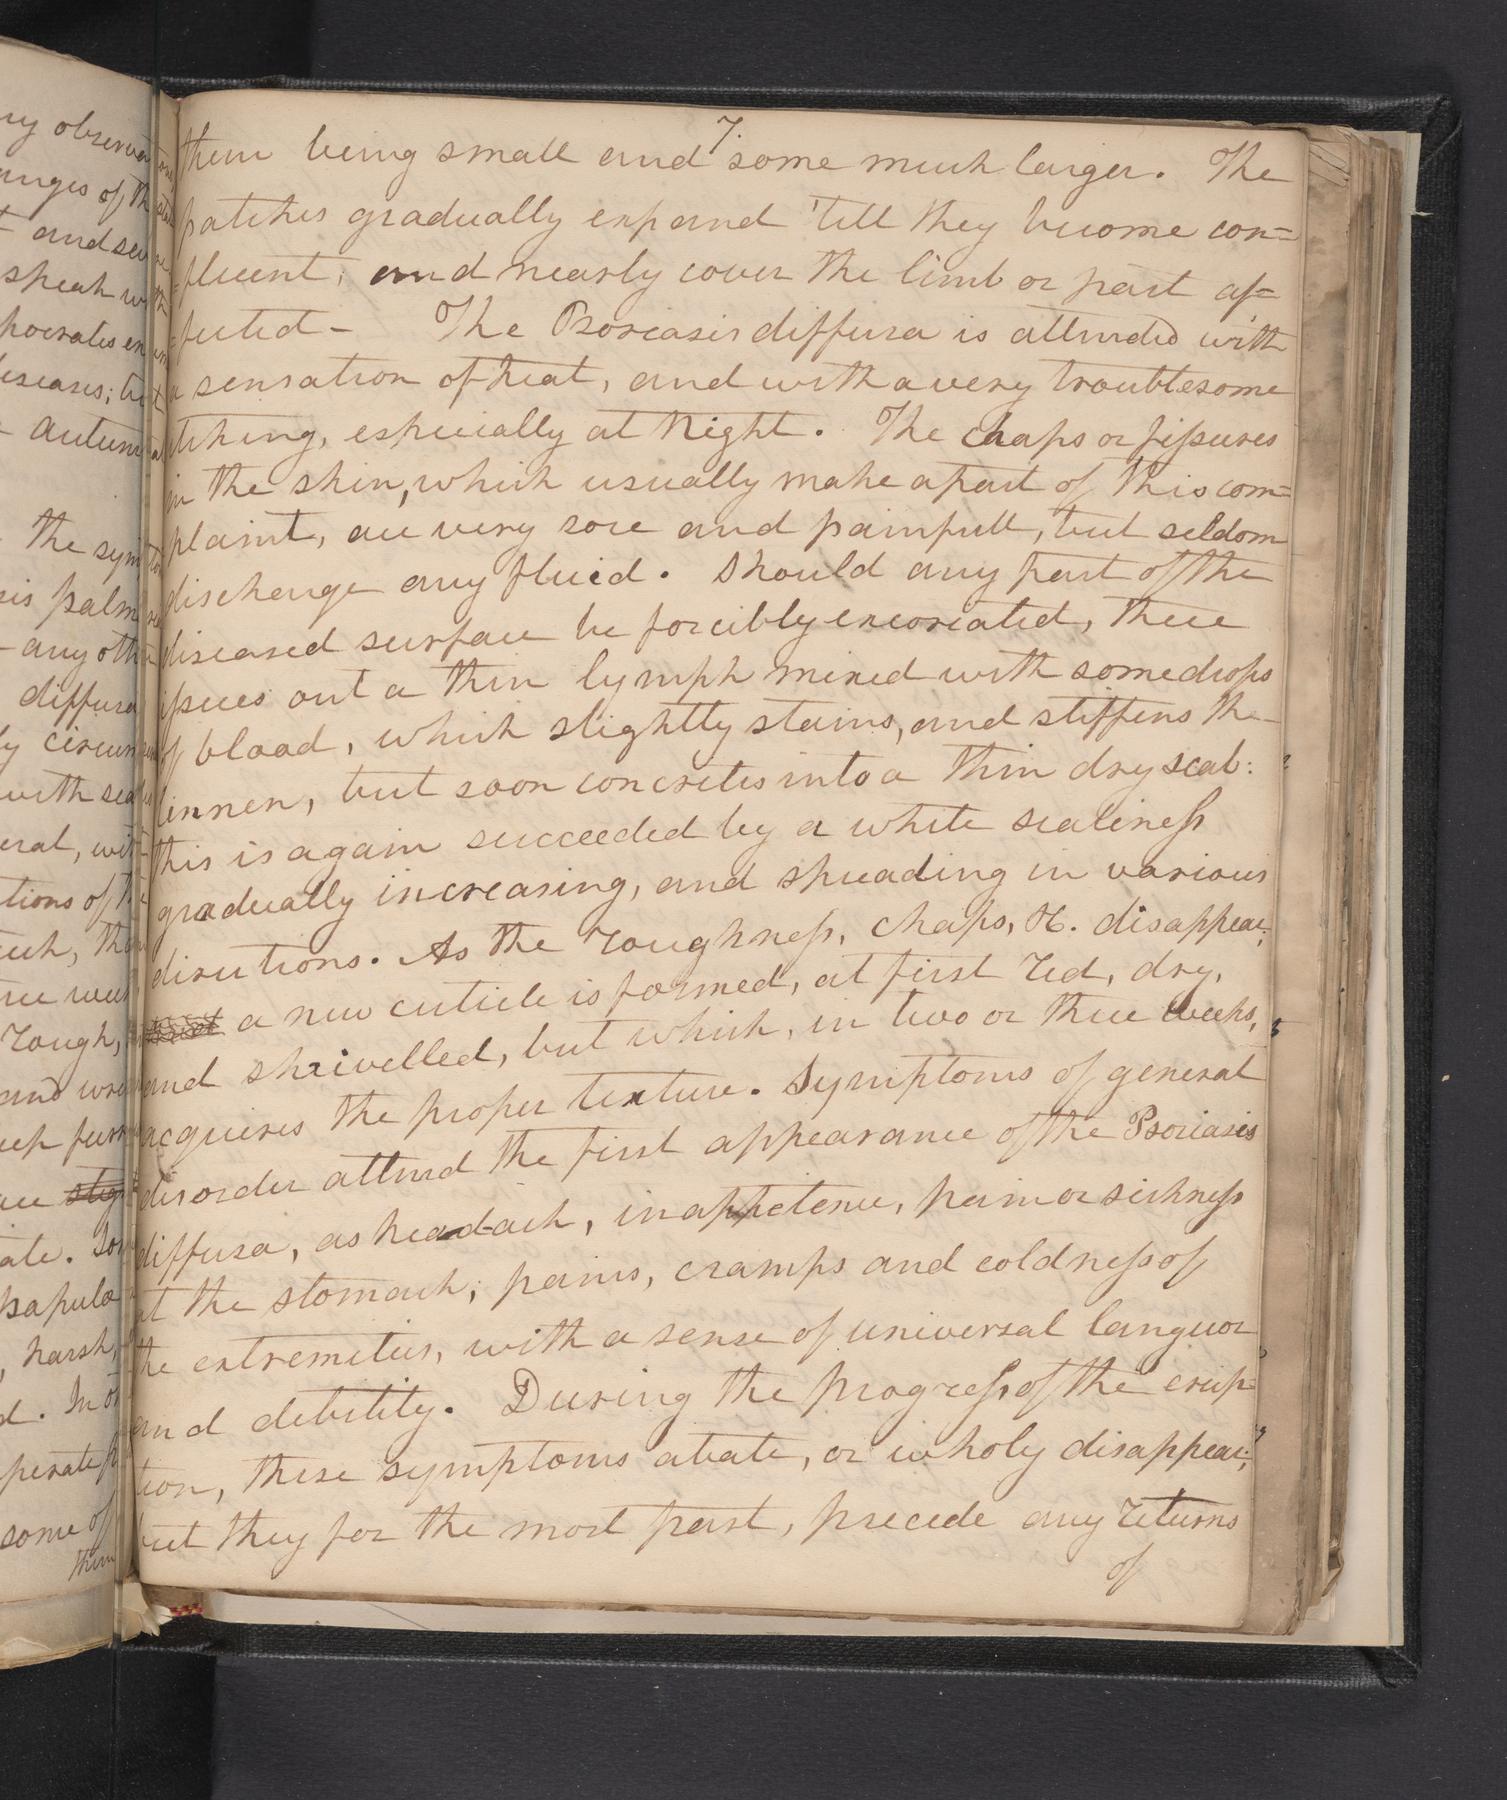 7.
them being small and some much larger. The
patches gradually expand 'till they become con=
=fluent, and nearly cover the limb or part af=
=fected – The Psoriasis diffusa is attended with
a sensation of heat, and with a very troublesome
itching, especially at Night. The chaps or fissures
in the skin, which usually make a part of this com=
plaint, are very sore and painfull, but seldom
discharge any fluid. Should any part of the
diseased surface be forcibly excoriated, there
issues out a thin lymph mixed with some drops
of blood, which slightly stains, and stiffens the
linnen, but soon concretes into a thin dry scab:
this is again succeeded by a white scaliness
gradually increasing, and spreading in various
directions. As the roughness, chaps, &c. disappear,
a new cuticle is formed, at first red, dry,
and shrivelled, but which, in two or three weeks,
acquires the proper texture. Symptoms of general
disorder attend the first appearance of the Psoriasis
diffusa, as headach, inappetence, pain or sickness
at the stomach; pains, cramps and coldness of
the extremities, with a sense of universal languor
and debility. During the progress of the erup=
tion, these symptoms abate, or wholy disappear;
but they for the most part, precede any returns
of